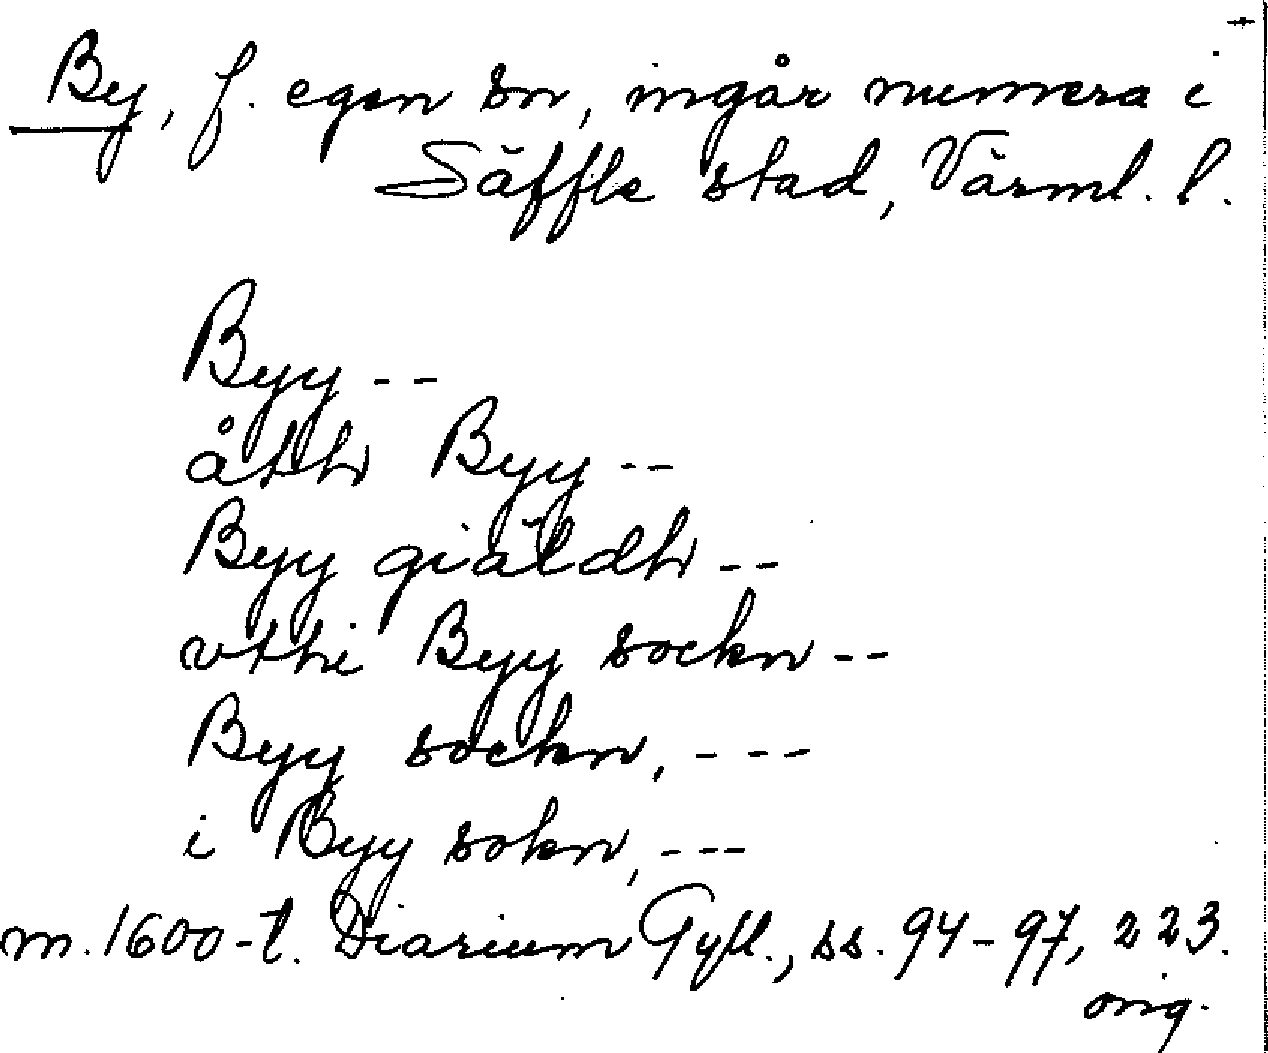 By, f. egen sn, ingår numera i
Säffle stad, Värml. l.
Byy --
åtth Byy --
Byy giäldh --
vthi Byy sockn --
Byy sockn, ---
i Byy sokn, ---
m. 1600-t. Diarium Gyll., ss. 94-97, 223.
orig.